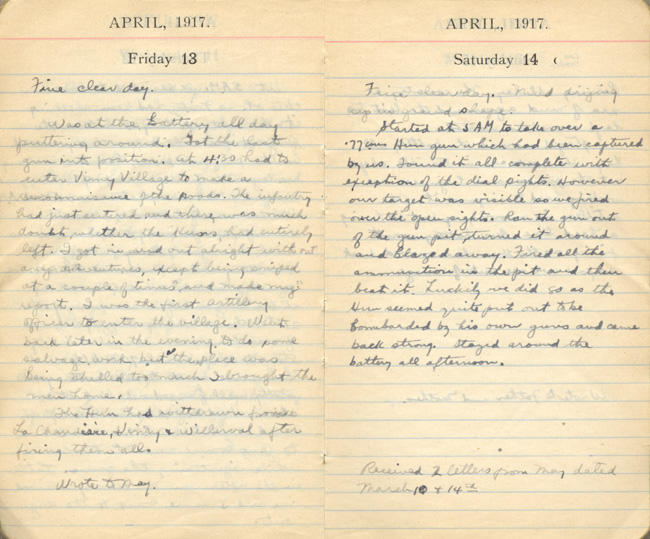 APRIL, 1917.
Friday 13
Fine clear day.
Was at the Battery all day
puttering around. Got the last
gun into position. At 4:30 had to
enter Vimy Village to make a
reconnaisance of the roads. The infantry
had just entered and there was much
doubt whether the Huns had entirely
left. I got in and out alright without
any adventures, except being sniped
at a couple of times, and made my
report. I was the first artillery
officer to enter the village. Went
back later in the evening to do some
salvage work but the place was
being shelled too much I brought the
men home.
The Hun had withdrawn from
La Chaudiere, Vimy & Willerval after
firing them all.
Wrote to May.
APRIL, 1917.
Saturday 14
Fine clear day. drying
up in good shape.
Started at 5 AM to take over a
77 cms Hun gun which had been captured
by us. Found it all complete with
exception of the dial sights. However
our target was visible so we fired
over the open sights. Ran the gun out
of the gun pit, turned it around
and blazed away. Fired all the
ammunition in the pit and then
beat it. Luckily we did so as the
Hun seemed quite put out to be
bombarded by his own guns and came
back strong. Stayed around the
battery all afternoon.
Received 2 letters from May dated
March 10 & 14th